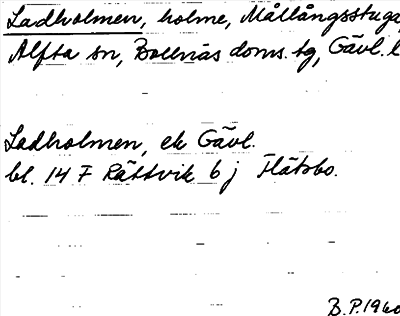 Ladholmen, holme, Mållångsstuga,
Alfta sn, Bollnäs doms. tg, Gävl. l
Ladholmen, ek Gävl.
bl. 14 F Rättvik 6 j Flätsbo.
B.P. 1960